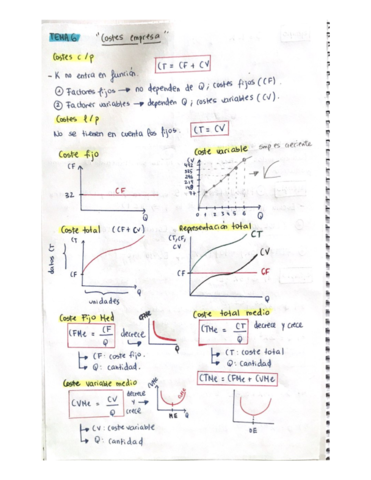 TEMA 6: "Costes empresa"
Costes c/p
CT = CF + CV
- K no entra en función.
① Factores fijos → no dependen de Q; costes fijos (CF).
② Factores variables → dependen Q; costes variables (CV).
Costes l/p
No se tienen en cuenta los fijos. CT = CV
Coste fijo
CF
32
CF
Q
Coste variable
CV
0 1 2 3 4 5 6 Q
Coste total (CF + CV)
CT
CF
Q
datos CT
unidades
Representación total
CT, CF, CV
CT
CV
CF
CF
Q
Coste Fijo Med
CFMe = CF / Q decrece
Q
↳ CF: coste fijo.
↳ Q: cantidad.
Coste total medio
CTMe = CT / Q decrece y crece
↳ CT: coste total
↳ Q: cantidad.
Coste variable medio
CVMe = CV / Q decrece y crece
Q
↳ CV: coste variable
↳ Q: cantidad
CTMe = CFMe + CVMe